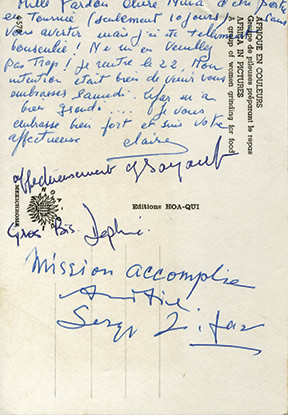 Mille Pardon chère
en tournée (seulement 10 jours)
vous avertir mais j'ai été tellement
bousculée ! Ne m'en veuillez
pas trop ! Je rentre le 22. Mon
intention était bien de venir vous
embrasser samedi.
bien grondé... Je vous
embrasse bien fort et suis votre
affectueuse
Claire
affectueusement
Gros Bis.
Mission accomplie
Amitié
Serge Lifar
4578
AFRIQUE EN COULEURS
Groupe de pileuses préparant le repas
AFRICA IN PICTURES
A group of women grinding for food
Editions HOA-QUI
MEXICHROME